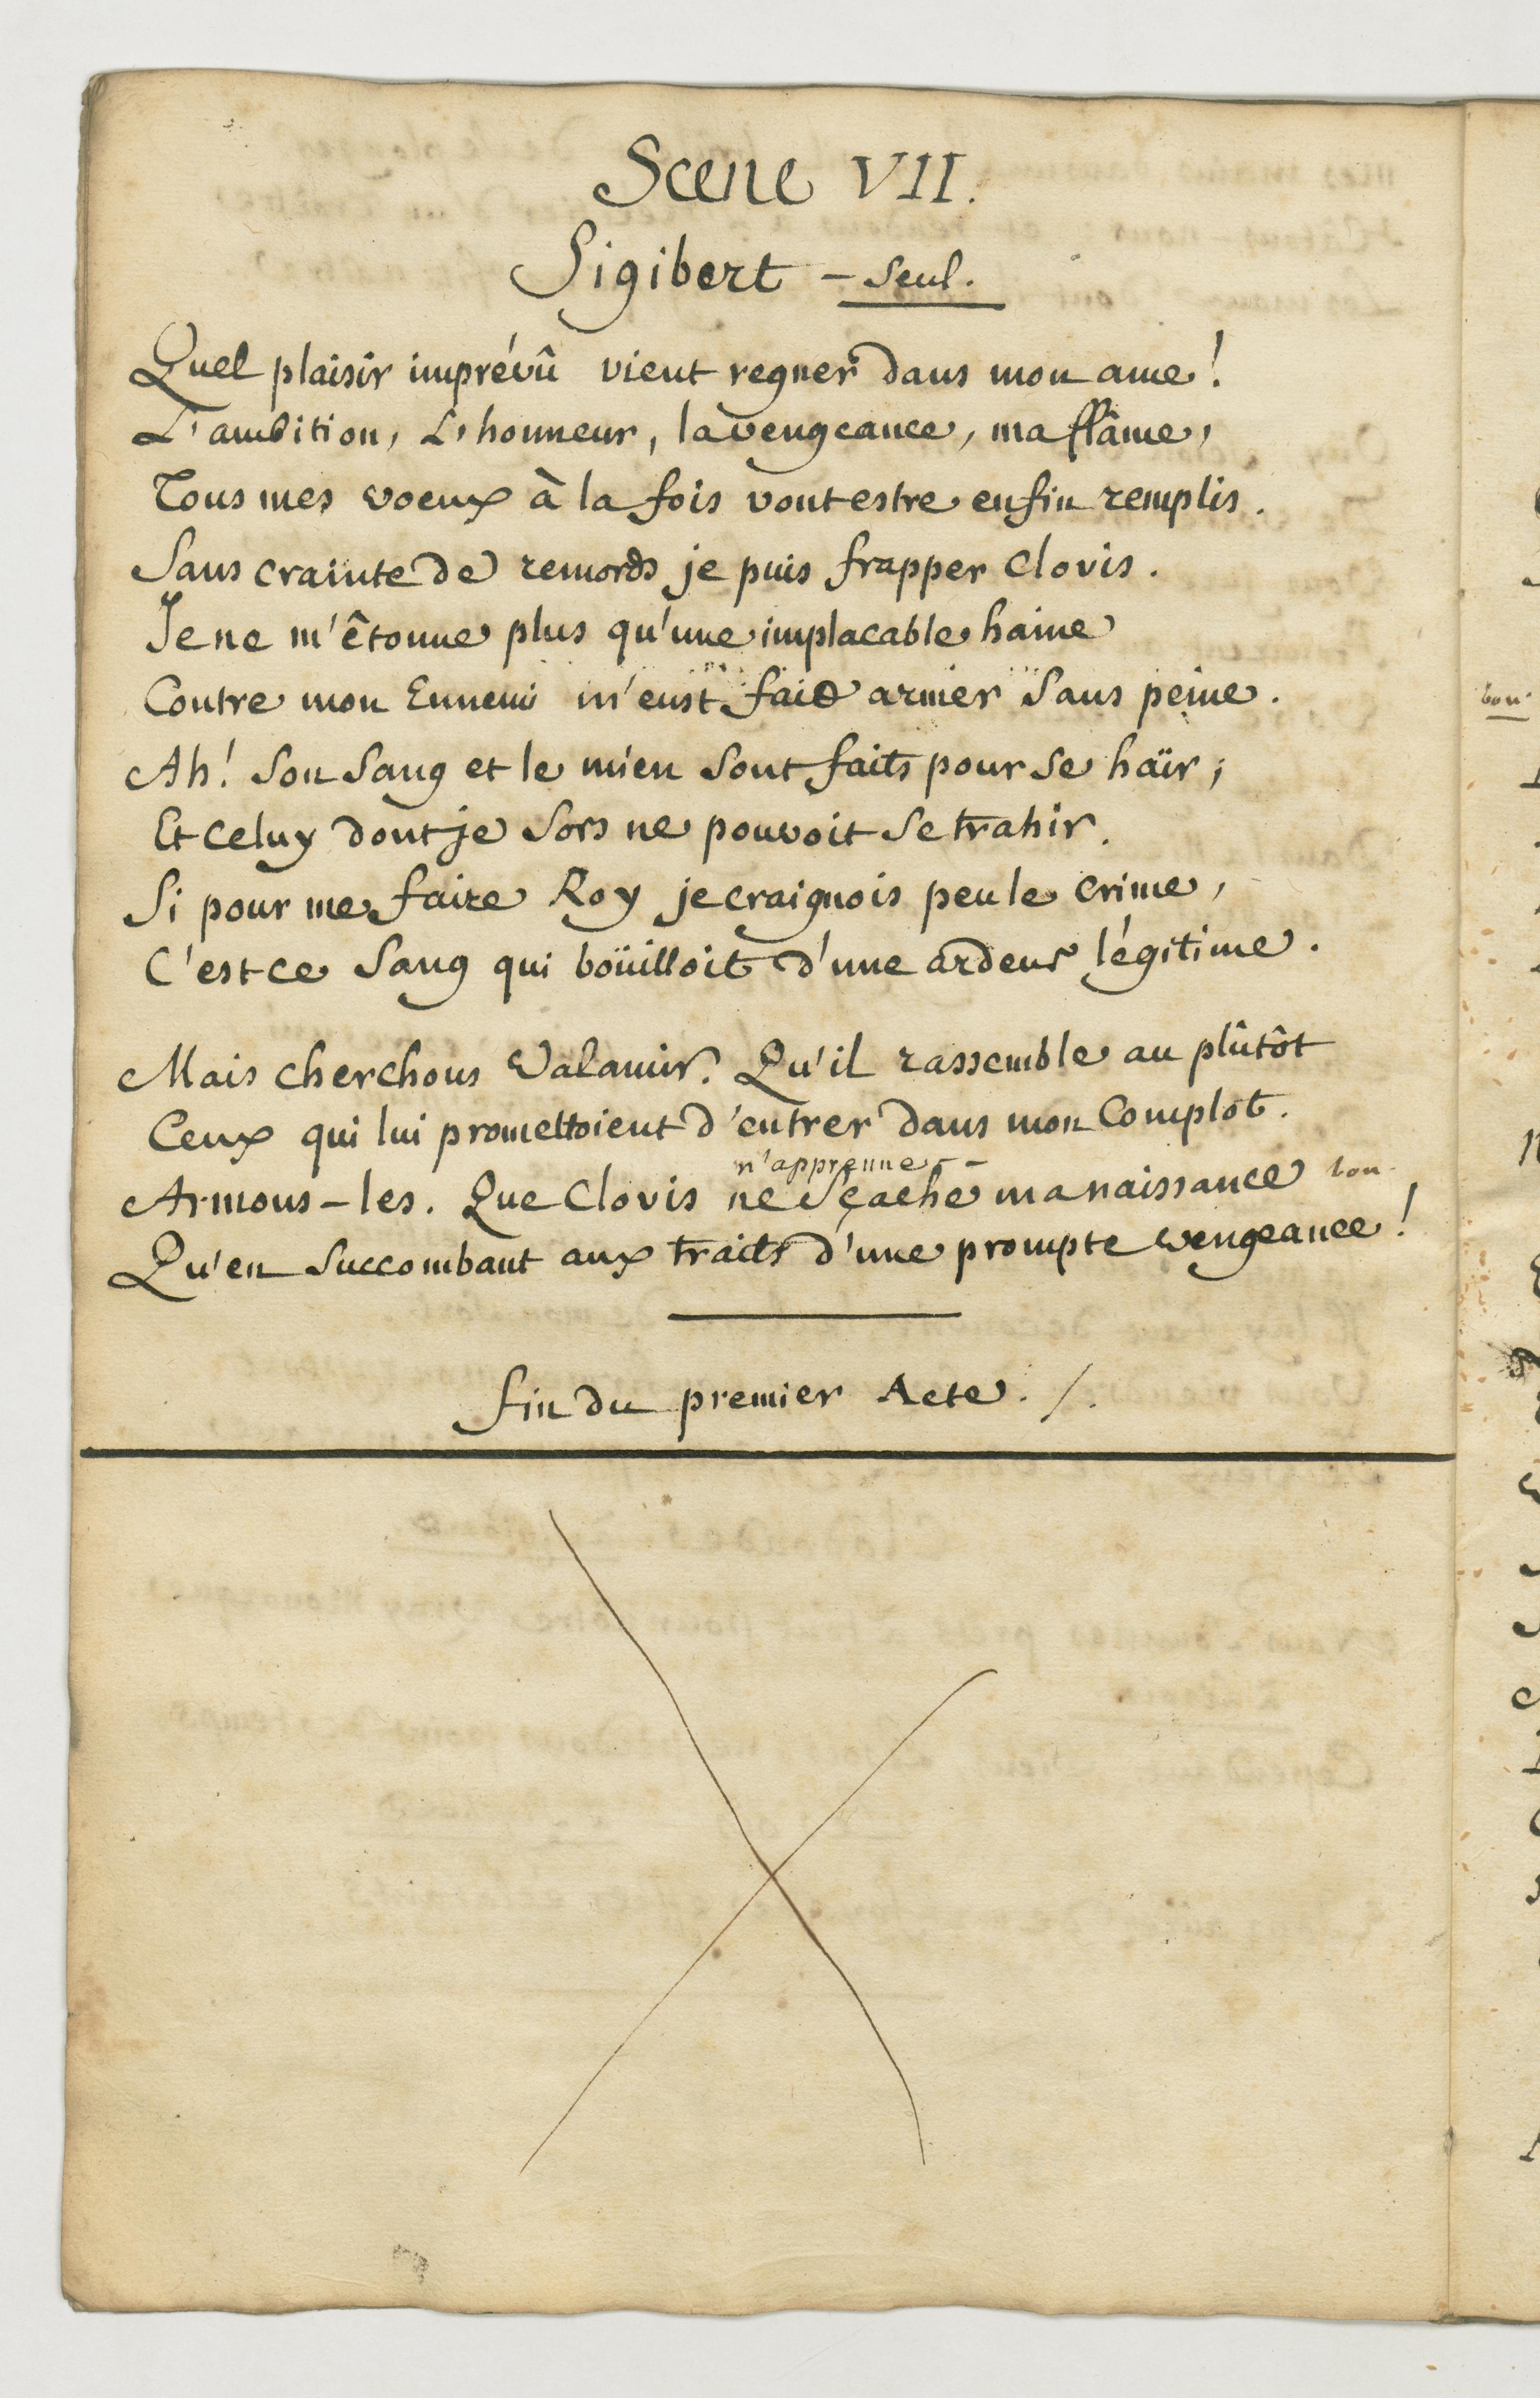 Scene VII.
Sigibert – Seul.
Quel plaisir imprévû vient regner dans mon ame!
L'ambition, L'honneur, la vengeance, ma flâme,
Tous mes voeux à la fois vont estre enfin remplis.
Sans crainte de remords je puis frapper Clovis.
Je ne m'êtonne plus qu'une implacable haine
Contre mon Ennemi m'eust fait armer Sans peine.
Ah! Son Sang et le mien Sont faits pour Se haïr;
Et celuy dont je Sors ne pouvoit Se trahir.
Si pour me faire Roy je craignois peu le crime,
C'est ce Sang qui boüilloit d'une ardeur légitime.
Mais cherchons Valamir. Qu'il rassemble au plûtôt
Ceux qui lui promettoient d'entrer dans mon Complot.
n'apprenne - -
Armons-les. Que Clovis ne Sçache ma naissance bon
Qu'en Succombant aux traits d'une prompte vengeance!
fin du premier Acte. /.
bon